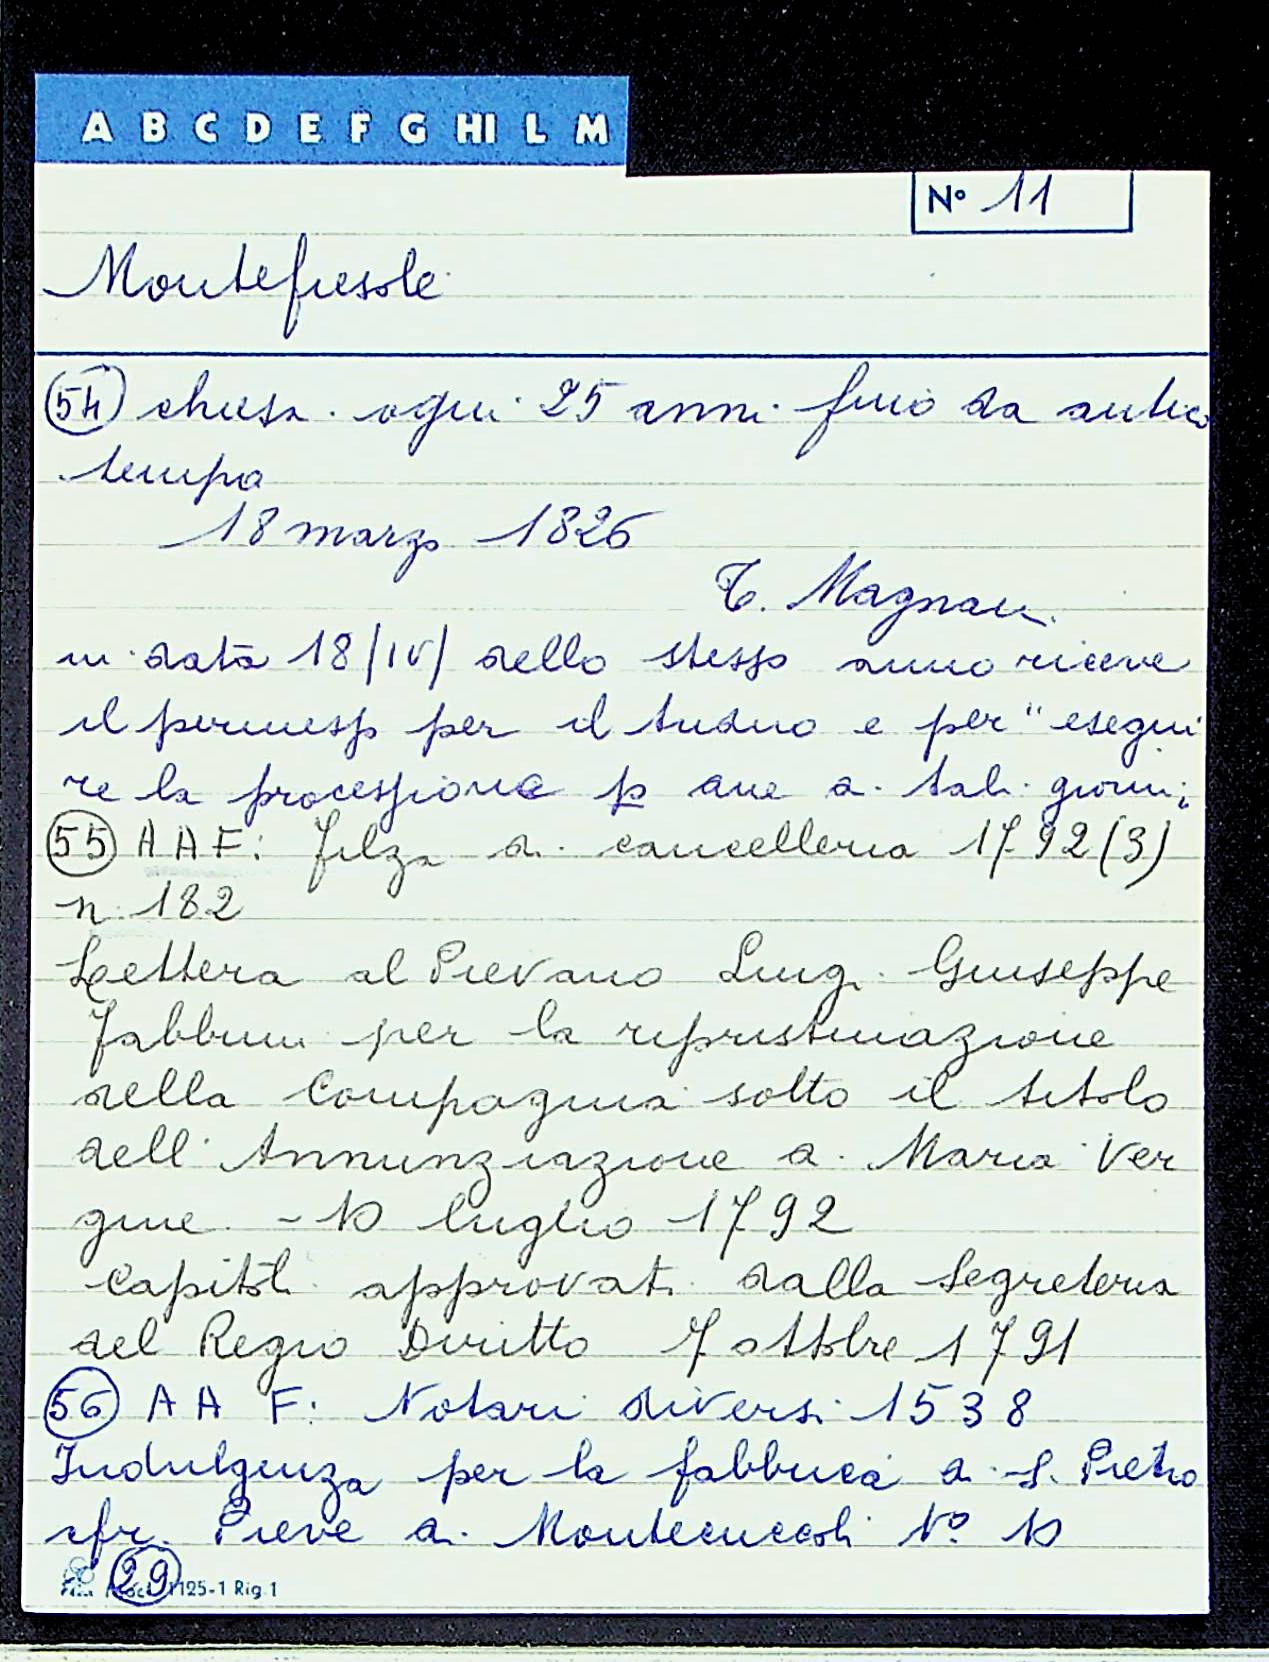 A B C D E F G HI L M
N° 11
Montefiesole
(54) chiesa ogni 25 anni fino da antico
tempo
18 marzo 1826
T. Magnani
in data 18/IV/ dello stesso anno riceve
il permesso per il triduo e per " esegui
re la processione p ane a. tali giorni;
(55) A A F: Filza di cancelleria 1792 (3)
n. 182
Lettera al Pievano Luigi Giuseppe
Fabbrini per la ripristinazione
della Compagnia sotto il titolo
dell'Annunziazione di Maria Ver
gine - 10 luglio 1792
Capitoli approvati dalla Segreteria
del Regio Diritto 7 ottobre 1791
(56) A A F: Notari diversi 1538
Indulgenza per la fabbrica di S. Pietro
cfr. Pieve di Montecuccoli N° 10
(29)
1125-1 Rig.1